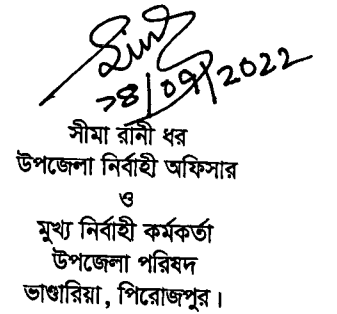 ১৪/০৭/2022
সীমা রানী ধর
উপজেলা নির্বাহী অফিসার
ও
মুখ্য নির্বাহী কর্মকর্তা
উপজেলা পরিষদ
ভাণ্ডারিয়া, পিরোজপুর।